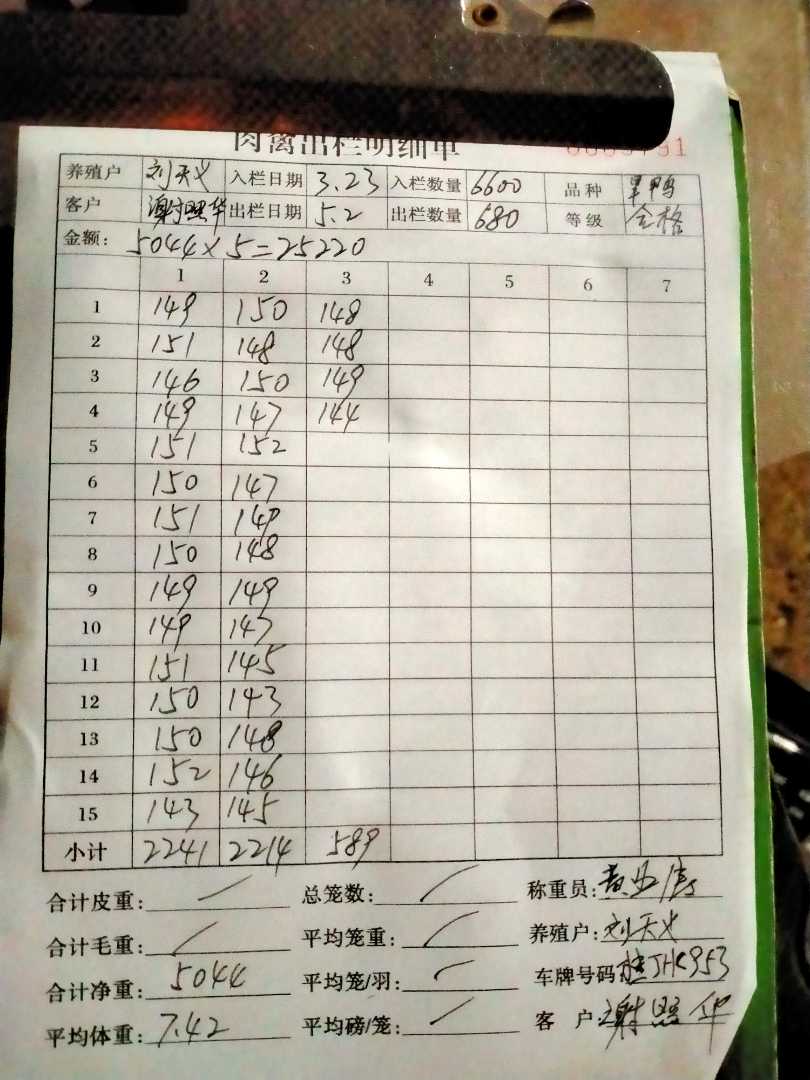 肉禽出栏明细单
养殖户 刘天义 入栏日期 3.23 入栏数量 6600 品种 旱鸭
客户 谢照华 出栏日期 5.2 出栏数量 680 等级 合格
金额: 5044×5=25220
1 2 3 4 5 6 7
1 149 150 148
2 151 148 148
3 146 150 149
4 149 147 144
5 151 152
6 150 147
7 151 149
8 150 148
9 149 149
10 149 147
11 151 145
12 150 143
13 150 148
14 152 146
15 143 145
小计 2241 2214 589
合计皮重: 总笼数: 称重员:
合计毛重: 平均笼重: 养殖户: 刘天义
合计净重: 5044 平均笼/羽: 车牌号码 桂JHK953
平均体重: 7.42 平均磅/笼: 客 户: 谢照华